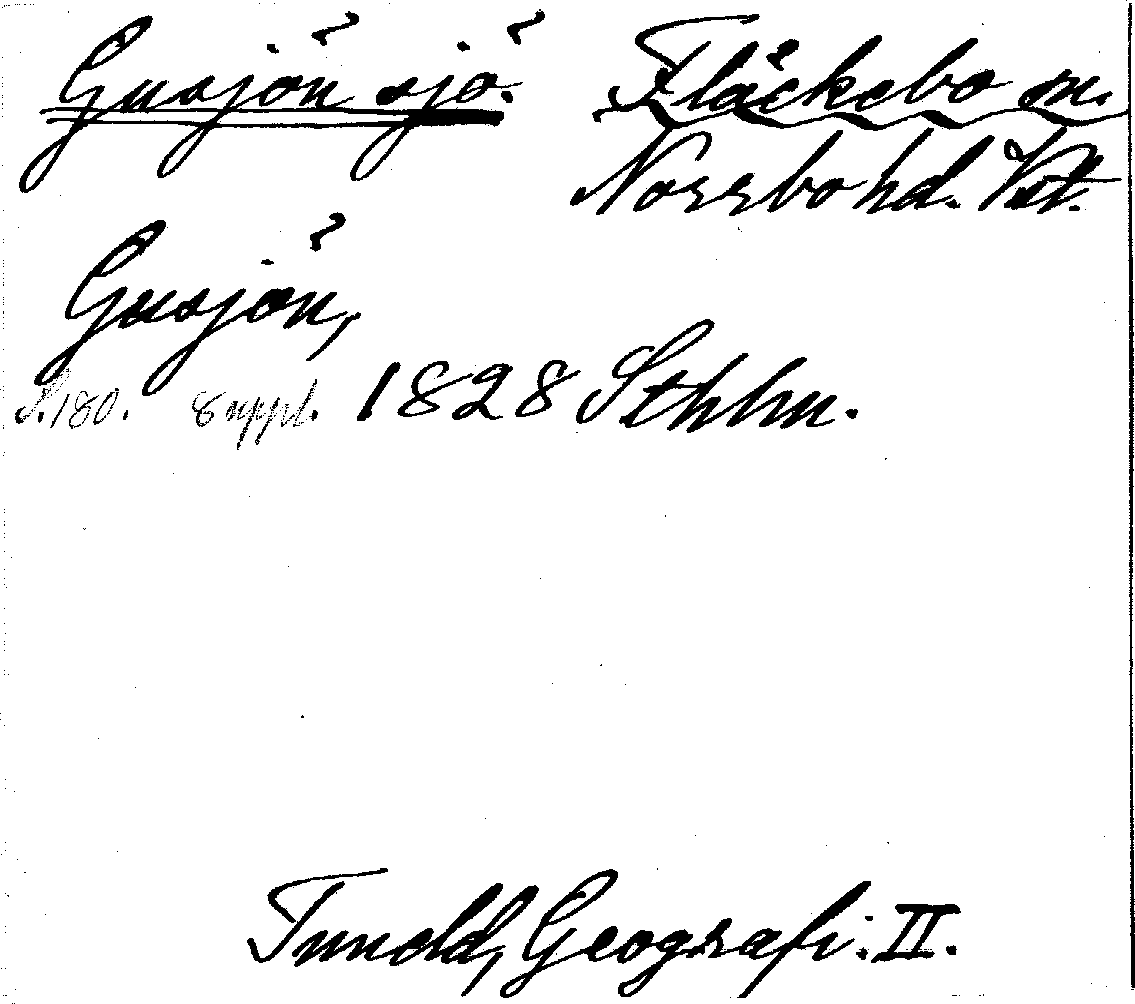 Gusjön sjö. Fläckebo sn.
Norrbo hd. Vstl.
Gusjön,
S. 180. 8 uppl. 1828 Sthlm.
Tuneld, Geografi. II.